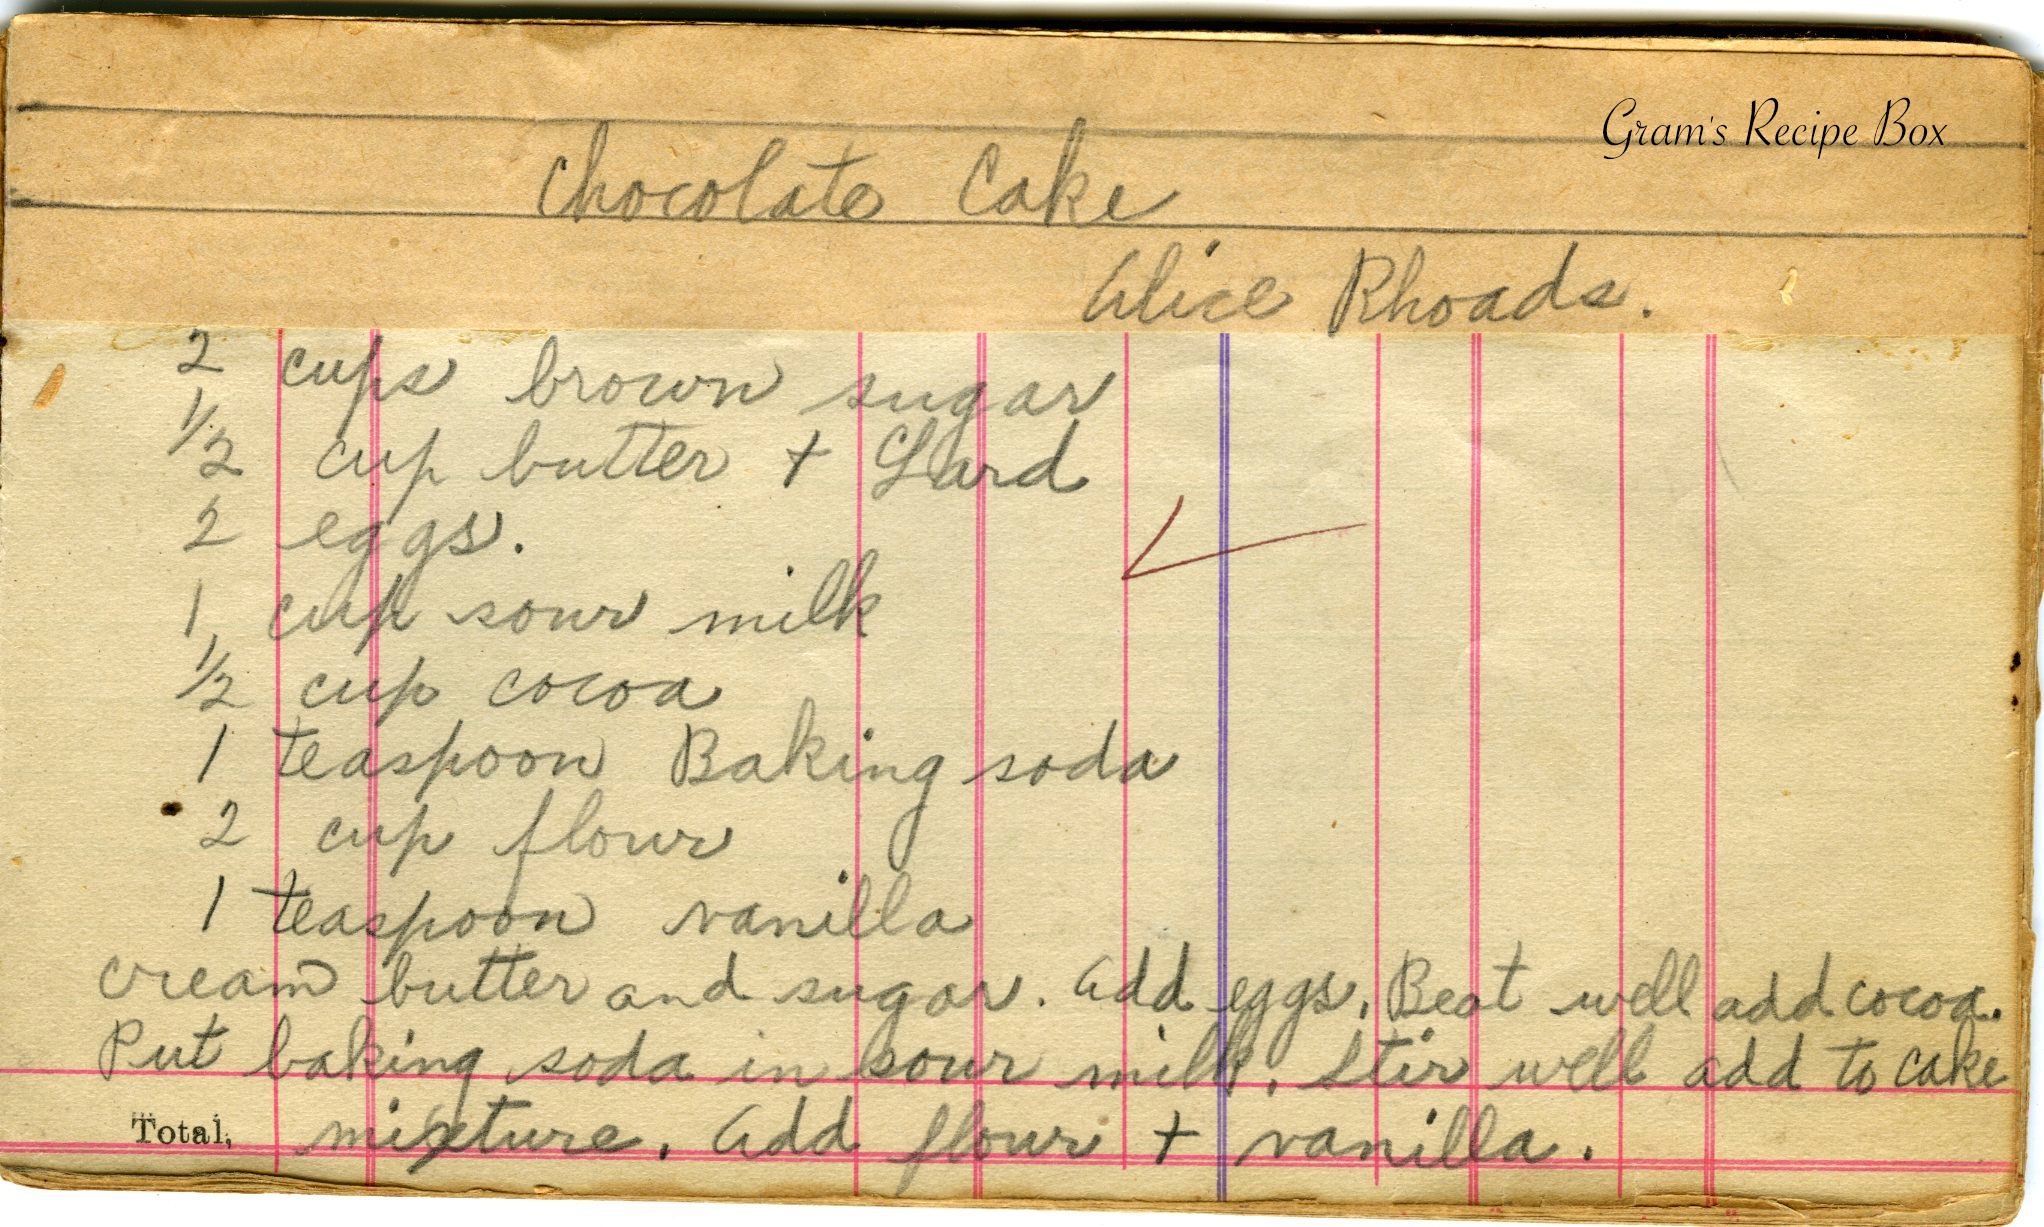 Gram's Recipe Box
Chocolate Cake
Alice Rhoads.
2 cups brown sugar
1/2 cup butter + Lard
2 eggs.
1 cup sour milk
1/2 cup cocoa
1 teaspoon Baking soda
2 cup flour
1 teaspoon vanilla
cream butter and sugar. add eggs. Beat well add cocoa.
Put baking soda in sour milk. Stir well add to cake
Total, mixture. add flour + vanilla.